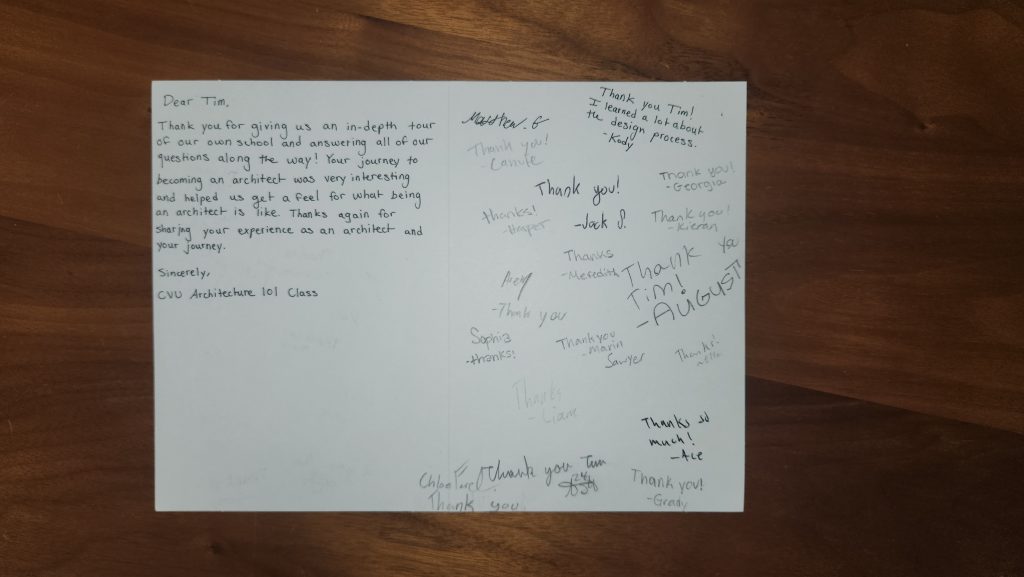 Dear Tim,
Thank you for giving us an in-depth tour
of our own school and answering all of our
questions along the way! Your journey to
becoming an architect was very interesting
and helped us get a feel for what being
an architect is like. Thanks again for
sharing your experience as an architect and
your journey.
Sincerely,
CVU Architecture 101 Class
Matthew. G
Thank you Tim!
I learned a lot about
the design process.
-Kody
Thank you!
Thank you!
-Georgia
Thank you!
-Jack S.
thanks!
-Harper
Thank you!
-Kieran
Thanks
-Meredith
Thank you
Tim!
-AUGUST
-Thank you
Sophia
-thanks!
Thank you
-Marin
Sawyer
Thanks!
Thanks
-Liam
Thanks so
much!
-Ace
Chloe
Thank you
Thank you Tim
Thank you!
-Grady